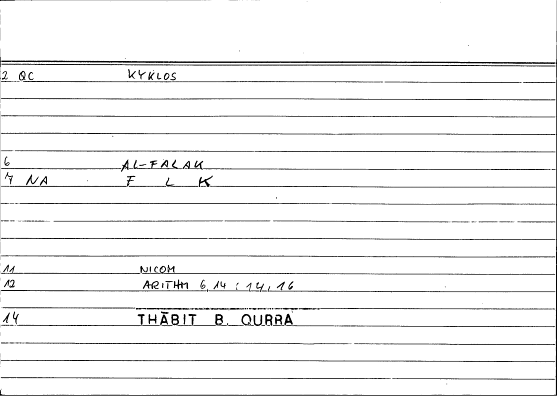 2 QC KYKLOS
6 AL-FALAK
7 NA F L K
11 NICOM
12 ARITHM 6,14 : 14,16
14 THĀBIT B. QURRA